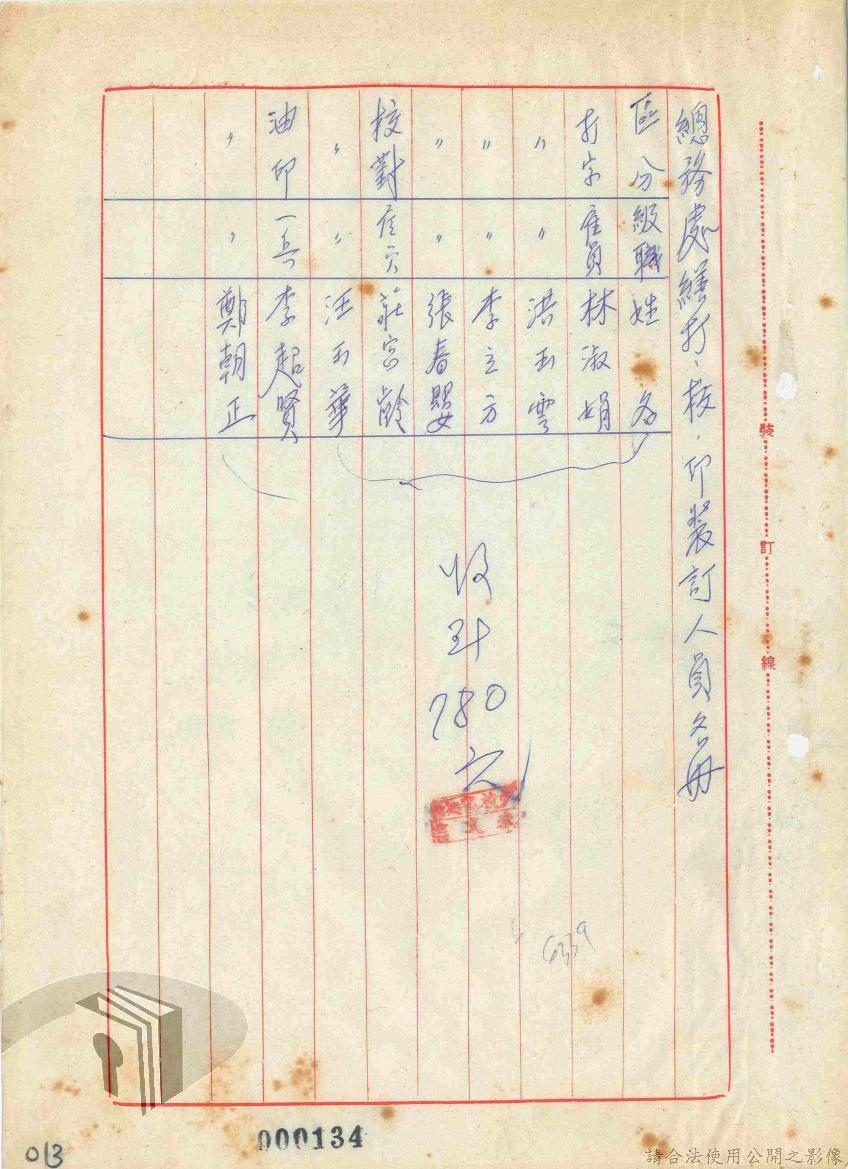 總務處繕打、校、印裝訂人員名冊
區分 級職 姓名
打字 雇員 林淑娟
〃 〃 洪玉雲
〃 〃 李立方
〃 〃 張春嬰
校對 莊宮齡
〃 〃 汪玉華
油印 一兵 李超賢
〃 〃 鄭朝正
收到
780
元
裝訂線
000134
013
請合法使用公開之影像